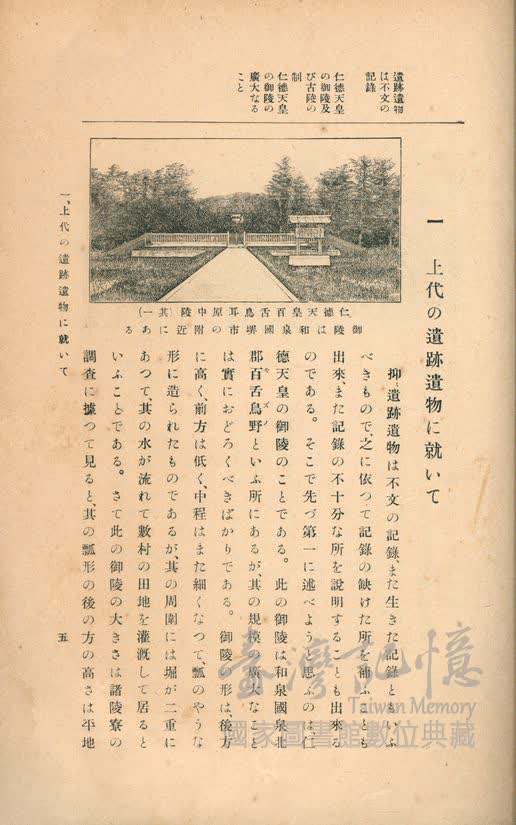 遺跡遺物
は不文の
記錄
仁德天皇
の御陵及
び古陵の
制
仁德天皇
の御陵の
廣大なる
こと
一 上代の遺跡遺物に就いて
仁德天皇百舌鳥耳原中陵(其一)
御陵は和泉國堺市の附近にある
抑〻遺跡遺物は不文の記錄、また生きた記錄ともいふ
べきもので、之に依つて記錄の缺けた所を補ふことも
出來、また記錄の不十分な所を說明することも出來る
のである。そこで先づ第一に述べようと思ふのは、仁
德天皇の御陵のことである。此の御陵は和泉國泉北
郡百舌鳥野といふ所にあるが、其の規模の廣大なこと
は實におどろくべきばかりである。御陵の形は、後方
に高く、前方は低く、中程はまた細くなつて、瓢のやうな
形に造られたものであるが、其の周圍には堀が二重に
あつて、其の水が流れて數村の田地を灌漑して居ると
いふことである。さて此の御陵の大きさは諸陵寮の
調査に據つて見ると、其の瓢形の後の方の高さは平地
一、上代の遺跡遺物に就いて
五
臺灣記憶
Taiwan Memory
國家圖書館數位典藏